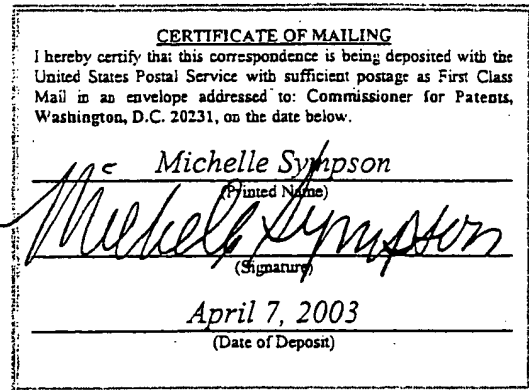 CERTIFICATE OF MAILING
I hereby certify that this correspondence is being deposited with the
United States Postal Service with sufficient postage as First Class
Mail in an envelope addressed to: Commissioner for Patents,
Washington, D.C. 20231, on the date below.
Michelle Sympson
(Printed Name)
Michelle Sympson
(Signature)
April 7, 2003
(Date of Deposit)